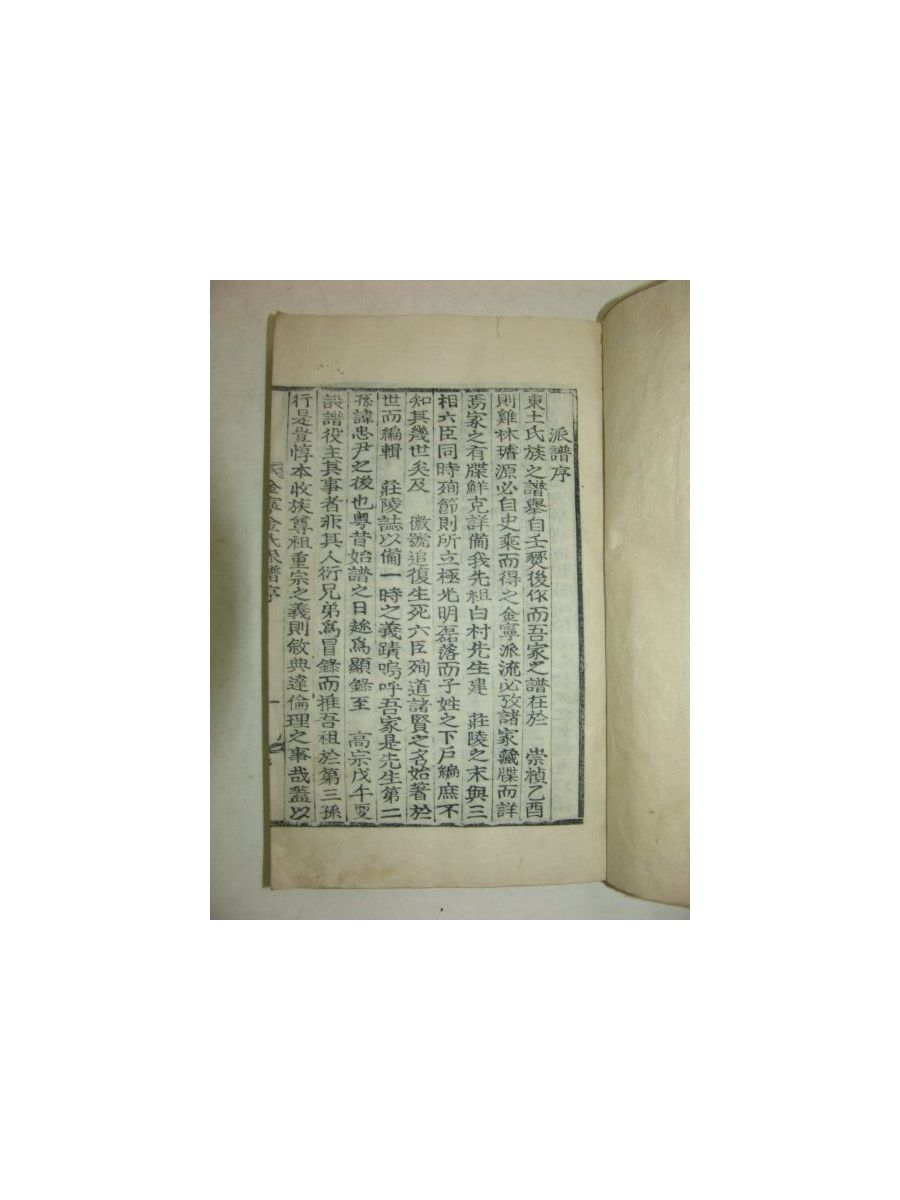 派譜序
東土氏族之譜舉自壬燹後作而吾家之譜在於 崇禎乙酉
則雞林璿源必自史乘而得之金寧派流必攷諸家藏牒而詳
焉家之有牒鮮克詳備我先祖白村先生建 莊陵之末與三
相六臣同時殉節則所立極光明磊落而子姓之下戶編庶不
知其幾世矣及 徽號追復生死六臣殉道諸賢之名始著於
世而編輯 莊陵誌以備一時之義蹟嗚呼吾家是先生第二
孫諱忠尹之後也粤昔始譜之日趂爲顯錄至 高宗戊午更
設譜役主其事者非其人衍兄弟爲冒錄而推吾祖於第三孫
行是豈惇本收族尊祖重宗之義則敘典達倫理之事哉蓋以
金寧金氏派譜序 一